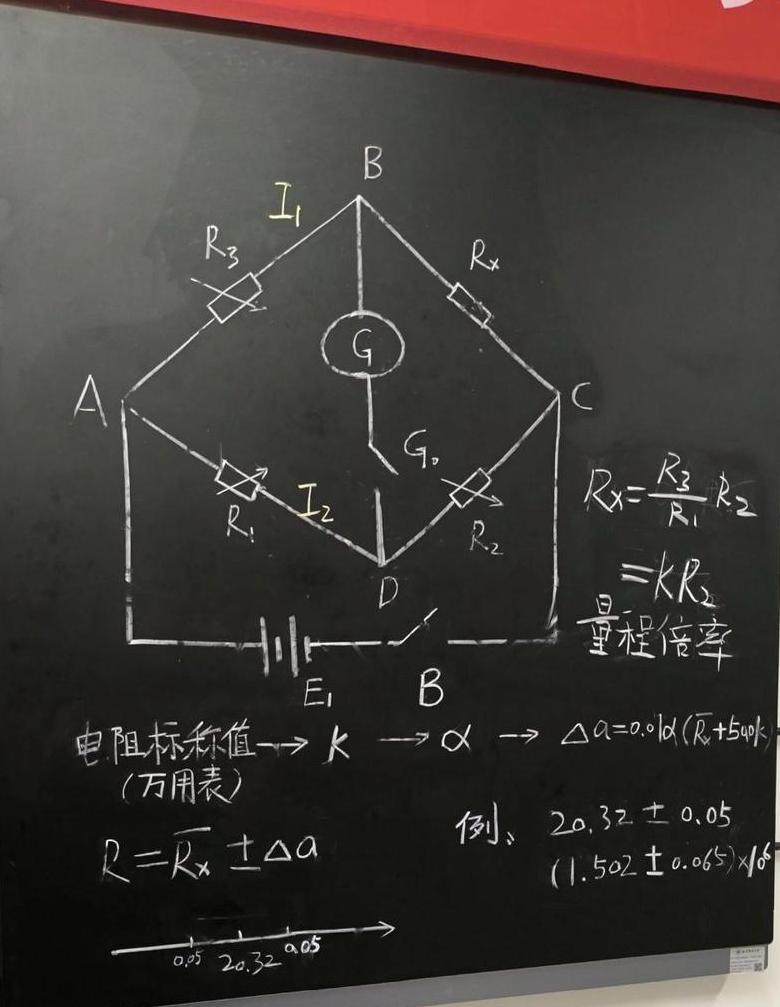 B
I₁
R₃
Rx
G
A
C
G₀
R₁
I₂
R₂
D
Rx = R₃/R₁ R₂
= KR₂
量程倍率
E₁
B
电阻标称值 → k → α → Δa=0.01α(R̅x+500k
(万用表)
R = R̅x ± Δa
例、 20.32 ± 0.05
(1.502 ± 0.065)×10⁶
0.05 20.32 0.05